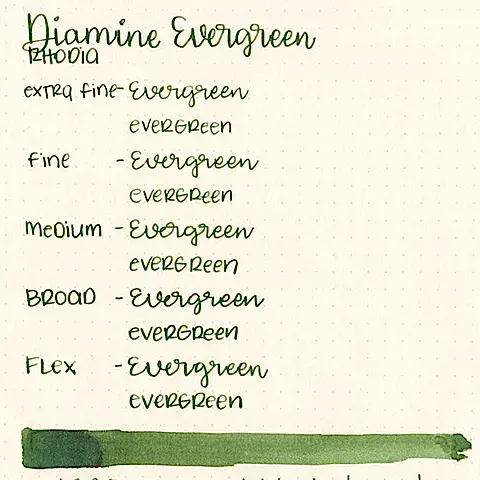 Diamine Evergreen
RHODIA
extra fine - Evergreen
EVERGREEN
Fine - Evergreen
EVERGREEN
Medium - Evergreen
EVERGREEN
BROAD - Evergreen
EVERGREEN
FLEX - Evergreen
EVERGREEN